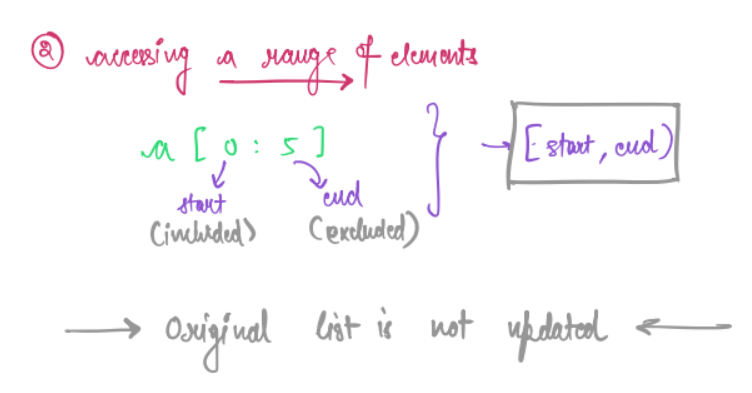 ② accessing a range of elements
a [ 0 : 5 ]
[ start, end )
start end
(included) (excluded)
Original list is not updated